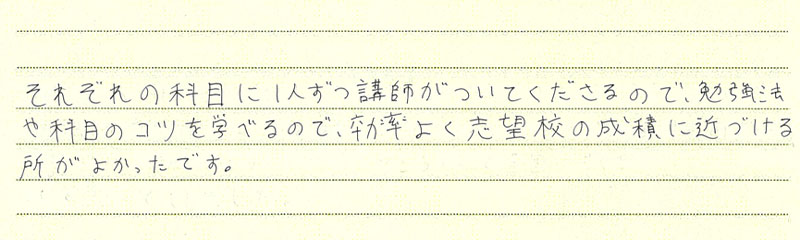 それぞれの科目に1人ずつ講師がついてくださるので、勉強法
や科目のコツを学べるので、効率よく志望校の成積に近づける
所がよかったです。